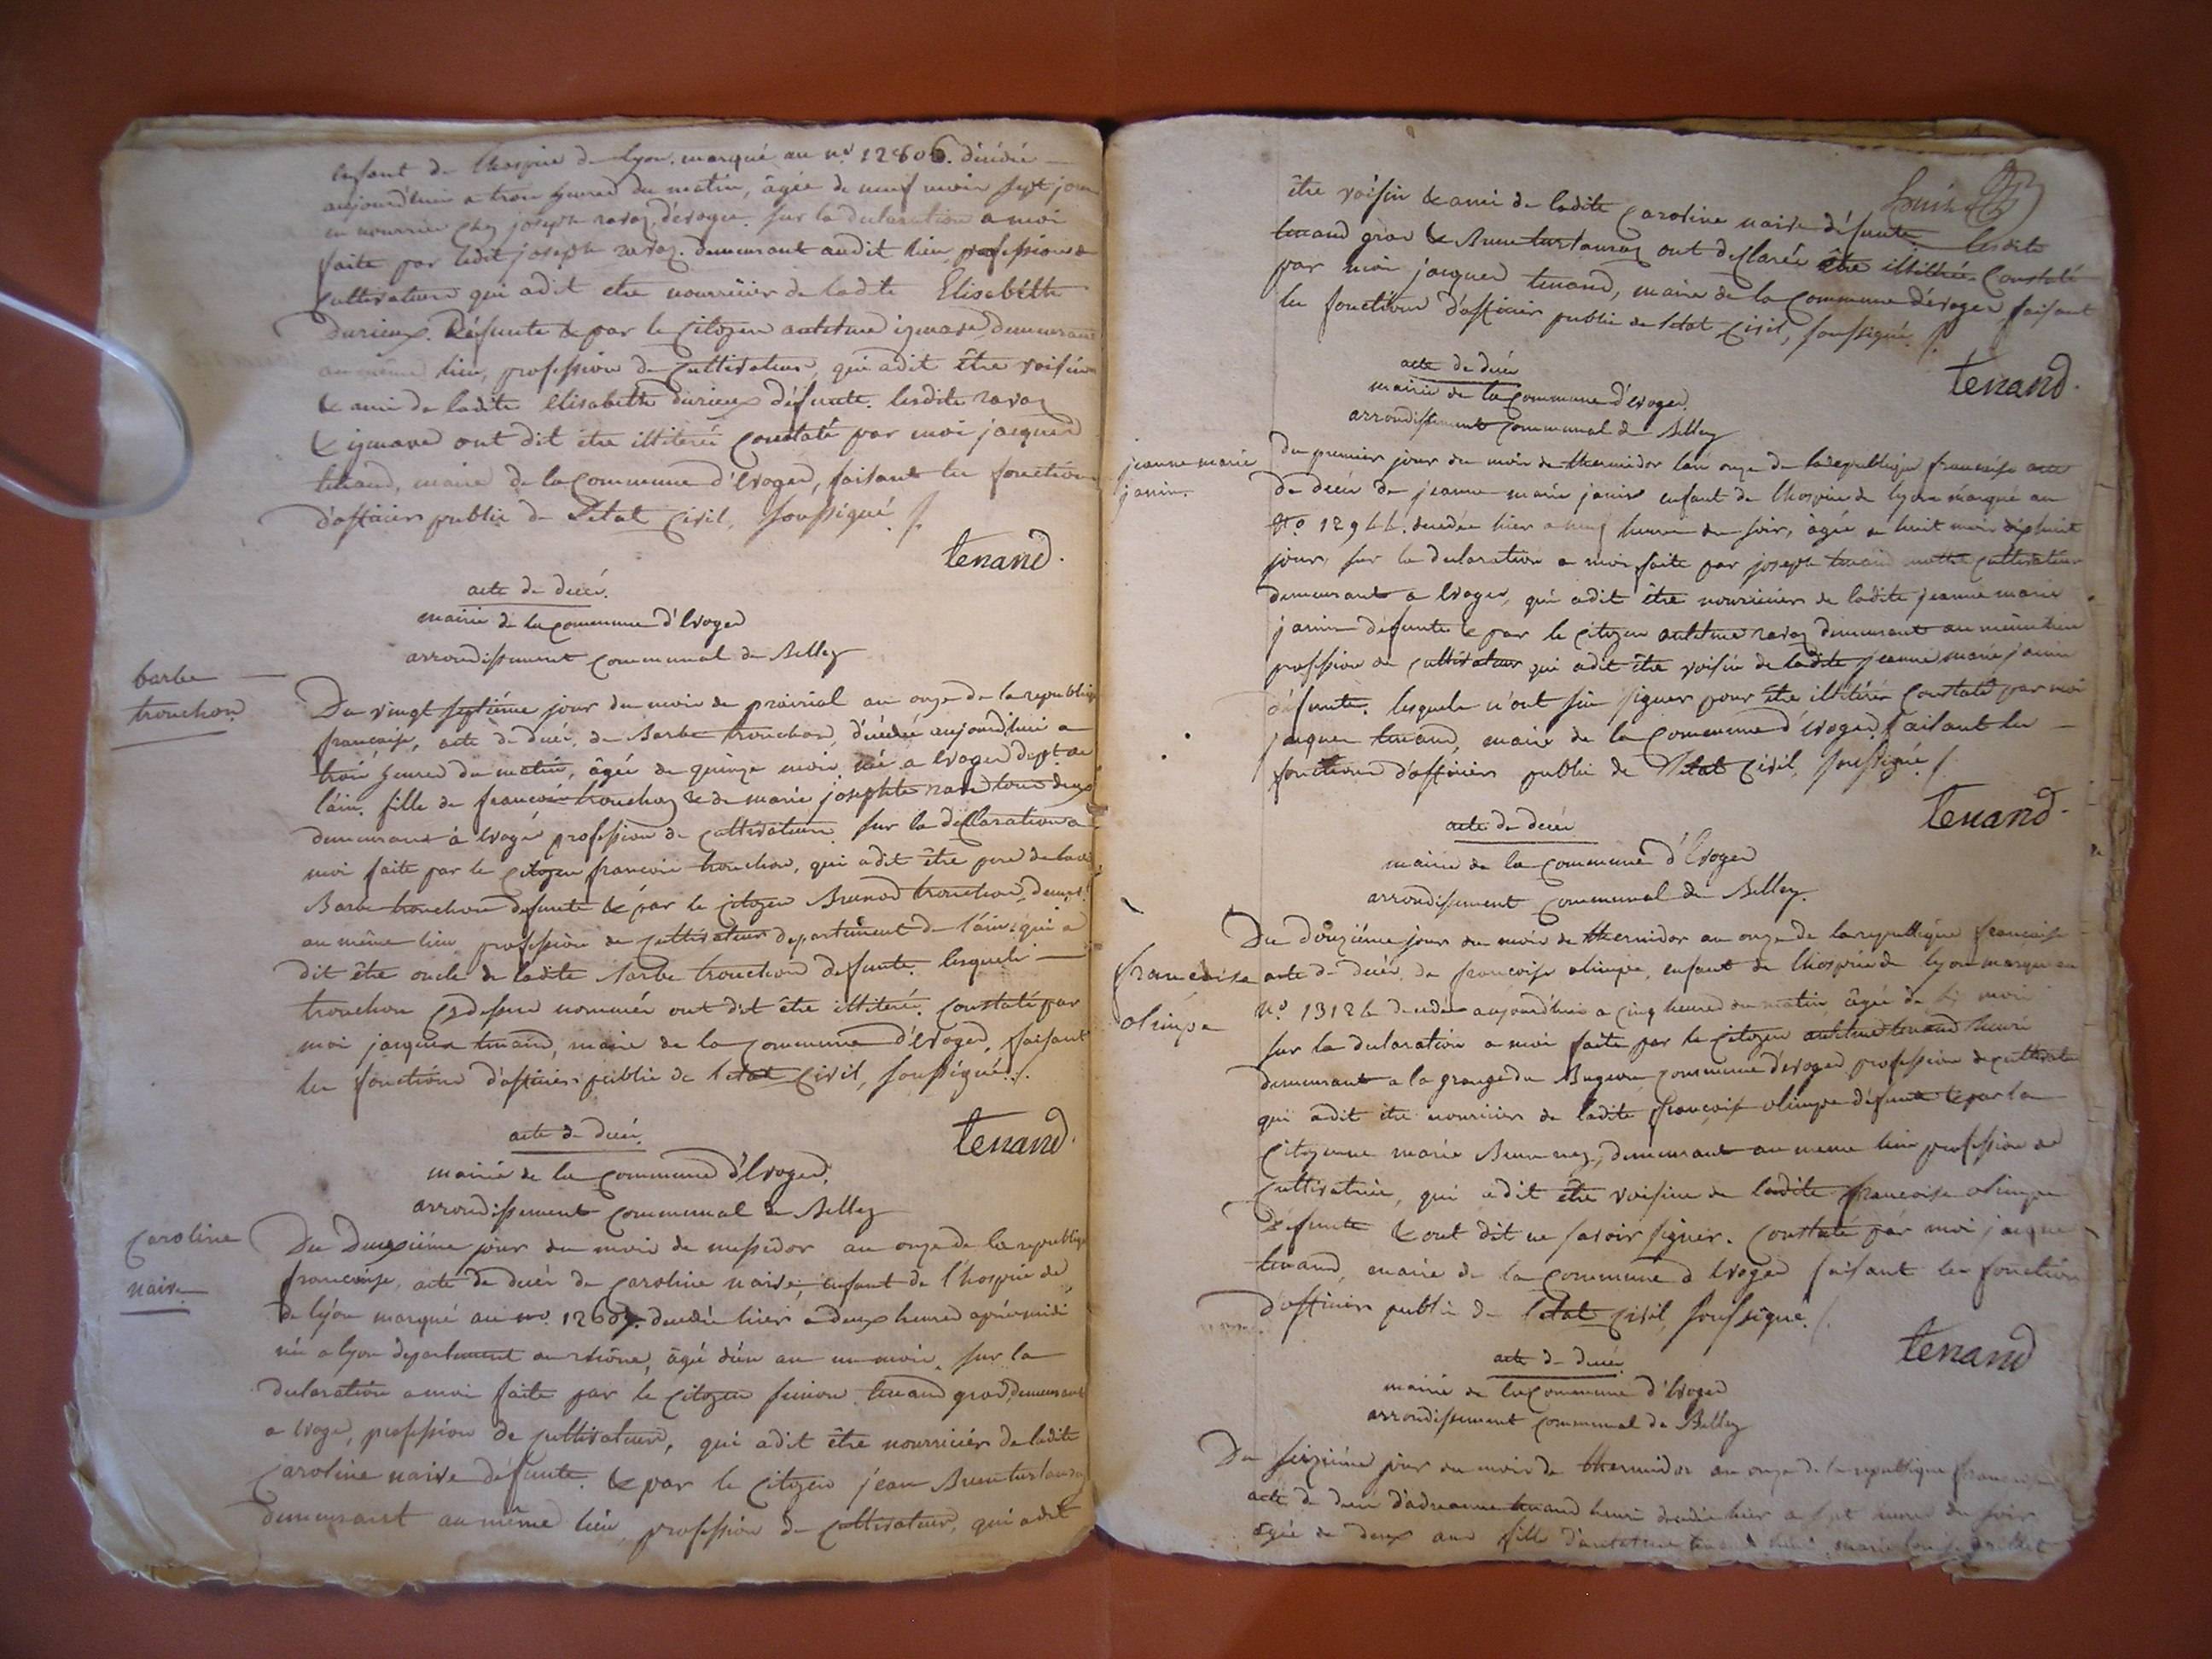 enfant de lhospice de lyon. marqué au n.o 12806. décédée
aujourd'hui a trois heures du matin, âgée de neuf mois sept jours
en nourrice chez joseph ravaz d'evoges. sur la declaration a moi
faite par ledit joseph ravaz. demeurant audit lieu, profession de
cultivateur qui a dit etre nourricier de ladite Elisabétte
durieux. Défunte & par le citoyen antelme demeurant
au même lieu, profession de cultivateur, qui a dit être voisin
& ami de ladite elisabette durieux défunte. lesdits ravaz
& ont dit être illiteré constaté par moi jacques
tenand, maire de la commune d'Evoges, faisant les fonctions
d'officier public de l'etat civil, soussigné
tenand.
acte de decé.
mairie de la commune d'Evoges
arrondissement communal de Belley
barbe
trouchon
Du vingt septiéme jour du mois de prairial an onze de la republique
francaise, acte de decés, de Barbe trouchon, décédée aujourd'hui a
trois heures du matin, âgée de quinze mois née a Evoges dept. de
l'ain. fille de francois trouchon & de marie josephte tous deux
demeurant à Evoges profession de cultivateurs sur la déclaration a
moi faite par le citoyen francois trouchon, qui a dit être pere de lad.
Barbe trouchon defunte & par le citoyen Brunod trouchon demt.
au même lieu profession de cultivateur departement de l'ain, qui a
dit être oncle de ladite barbe trouchon defunte. lesquels
trouchon cydessus nommés ont dit être illiteré. constaté par
moi jacques tenand, maire de la commune d'Evoges, faisant
les fonctions d'officier public de l'etat civil, soussigné
tenand.
acte de decés.
mairie de la commune d'Evoges.
arrondissement communal de Belley
Caroline
naive
Du Deuxiéme jour du mois de messidor an onze de la republique
francaise, acte de decés de Caroline naive, enfant de l'hospice de
de lyon marqué au n.o decedée hier a deux heures aprés midi
née a lyon departement du rhône, âgée d'un an un mois. sur la
declaration a moi faite par le citoyen simon tenand gros, demeurant
a Evoges, profession de cultivateur, qui a dit être nourricier de ladite
Caroline naive défunte. & par le citoyen jean
demeurant au même lieu profession de cultivateur, qui a dit
être voisin & ami de ladite Caroline naive défunte lesdits
tenand gros & ont déclaré être illitéré. Constaté
par moi jacques tenand, maire de la commune d'evoges, faisant
les fonctions d'officier public de l'etat civil, soussigné
tenand.
acte de decés
mairie de la commune d'evoges.
arrondissement communal de Belley
jeanne marie
janin.
du premier jour du mois de thermidor l'an onze de la republique francaise acte
de decés de jeanne marie janin enfant de lhospice de lyon marqué au
N.o decedée hier a heures du soir, agée de huit mois dixhuit
jours, sur la declaration a moi faite par joseph tenand cultivateur
demeurant a Evoges, qui a dit être nourricier de ladite jeanne marie
janin défunte & par le citoyen antelme ravaz demeurant au même lieu
profession de cultivateur qui a dit être voisin de ladite jeanne marie janin
défunte. lesquels n'ont su signer pour être illitérés constaté par moi
jacques tenand, maire de la commune d'evoges faisant les
fonctions d'officier public de l'etat civil, soussigné
tenand.
acte de decés
mairie de la commune d'Evoges
arrondissement communal de Belley.
francoise
olimpe
Du douziéme jour du mois de thermidor an onze de la republique francaise
acte de decés, de francoise olimpe, enfant de lhospice de lyon marqué au
N.o decedée aujourd'hui a cinq heures du matin, âgée de mois
sur la declaration a moi faite par le citoyen antelme tenand henri
demeurant a la grange du commune d'evoges profession de cultivateur
qui a dit être nourricier de ladite francoise olimpe défunte & par la
Citoyenne marie demeurant au meme lieu profession de
Cultivatrice, qui a dit être voisine de ladite francoise olimpe
défunte & ont dit ne savoir signer. Constaté par moi jacques
tenand, maire de la commune d'Evoges faisant les fonctions
d'officier public de l'etat civil, soussigné.
tenand
acte de decés
mairie de la commune d'Evoges
arrondissement communal de Belley
Du seiziéme jour du mois de thermidor an onze de la republique francaise
acte de decés tenand henri decedée hier a sept heures du soir
agée de deux ans fille d'antelme tenand